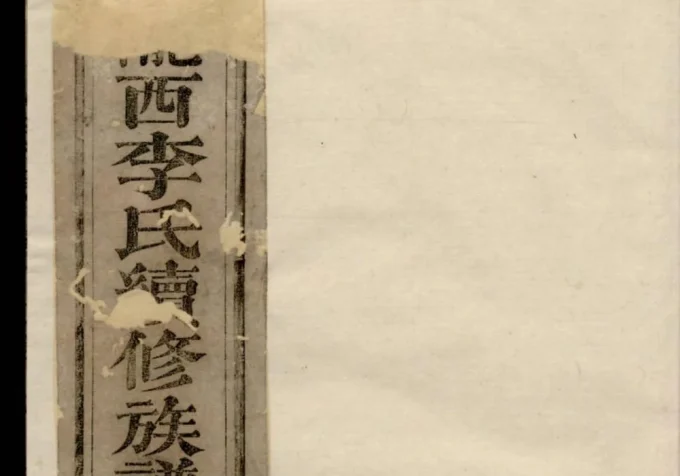 西李氏續修族譜